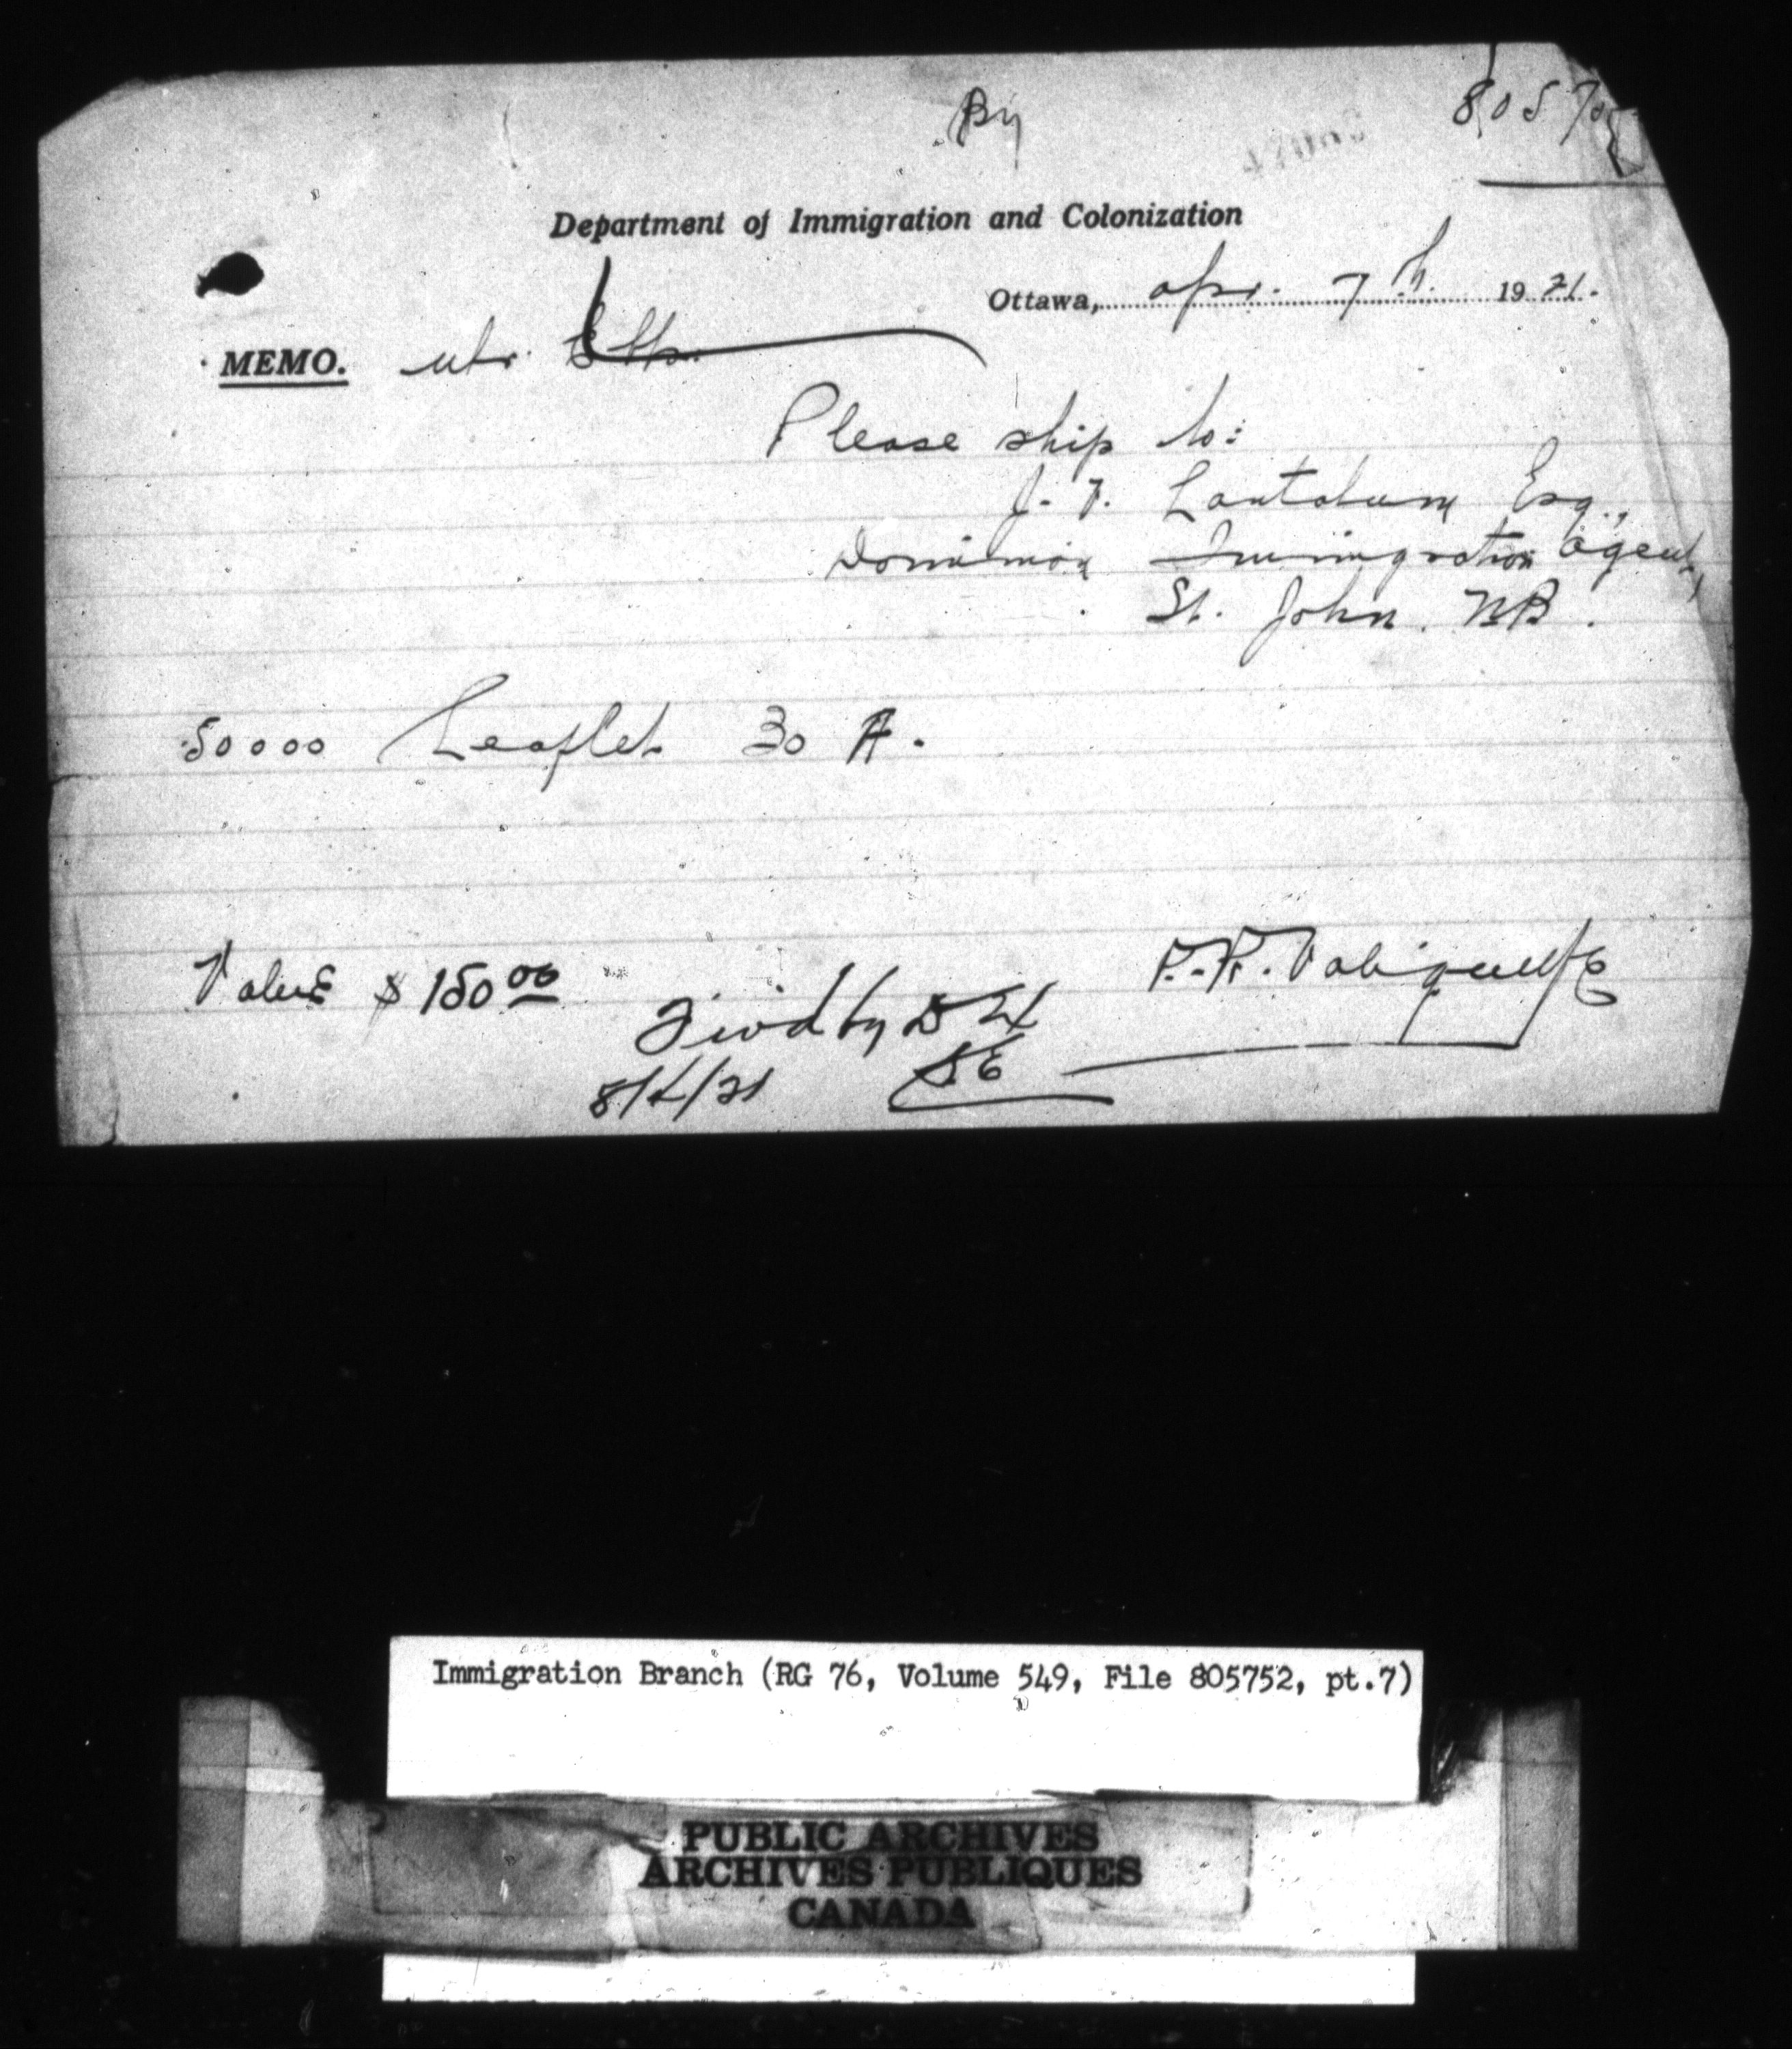 By
80575
Department of Immigration and Colonization
Ottawa, Apr. 7th. 1921.
MEMO. Mr.
Please ship to:
J. V. Lantalum Esq.,
Dominion Immigration Agent,
St. John. NB.
50000 Leaflet 30 A.
Value $150 00
P.-R. Valiquette
by
8/4/21
Immigration Branch (RG 76, Volume 549, File 805752, pt.7)
PUBLIC ARCHIVES
ARCHIVES PUBLIQUES
CANADA